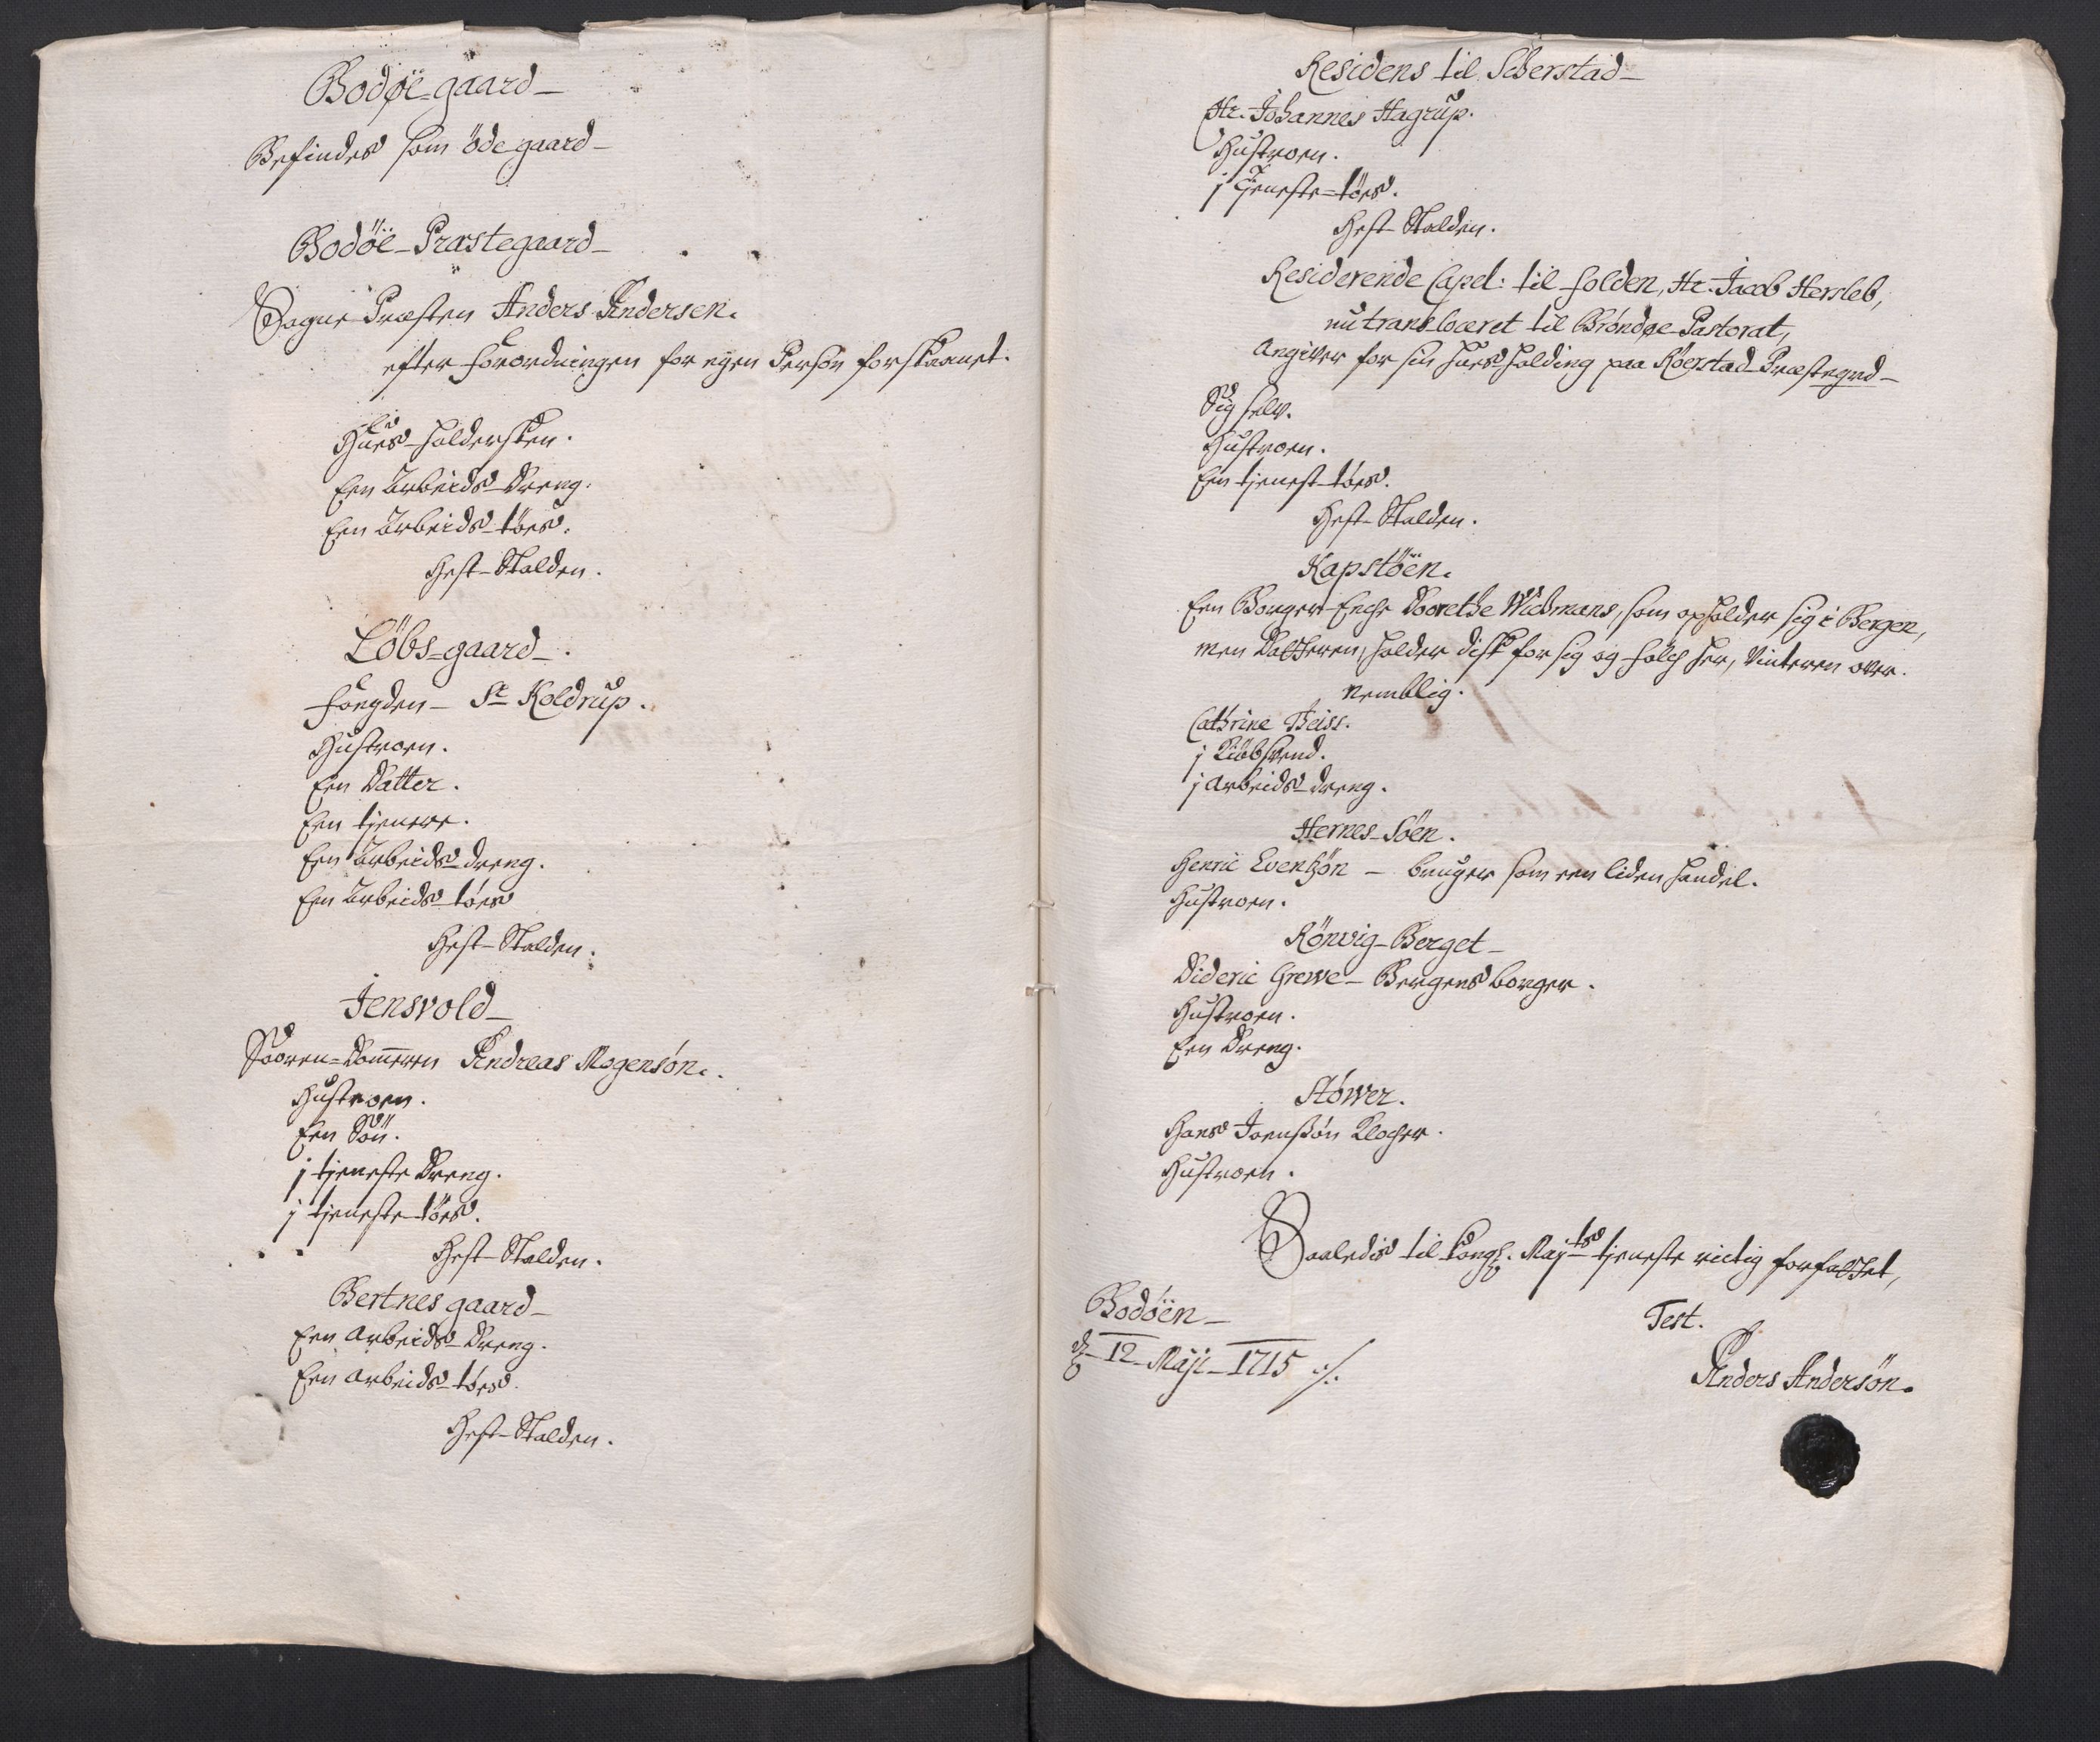 Bodøe-gaard
Befindes som öde gaard
Bodøe-Præstegaard
Sogne-Præsten Anders Andersen.
efter forordningen for egen Person forskaanet.
Hues-holdersken.
Een Arbeids-Dreng.
Een Arbeids-töes.
Hest-Skolden.
Löbs-gaard
fougden Sr Koldrup.
Hustroen.
Een Datter.
Een tjenere.
Een Arbeids-dreng.
Een Arbeids-töes
Hest-Skolden.
Jensvold
Sooren-Dommeren Andreas Mogensøn.
Hustroen.
Een Sön.
j tjeneste Dreng.
j tjeneste töes.
Hest-Skolden.
Bertnes gaard
Een Arbeids-Dreng.
Een Arbeids-töes.
Hest-Skolden.
Residens til Seierstad
Hr. Johannes Hagrup.
Hustroen.
j Tjeneste-töes.
Hest-Skolden.
Residerende Capel: til folden, Hr. Jacob Hersleb,
nu transloceret til Brøndøe-Pastorat,
Angiver for sin huesholding paa Röerstad-Præstegrd
Sig selv.
Hustroen.
Een tjenest-töes.
Hest-Skolden.
Kapstöen.
Een Borger-Encke Doorethe Widmans, som opholder sig i Bergen,
men Datteren, holder disk for sig og folch her, Vinteren over.
Nemblig.
Cathrine Theiss.
j Kiöbsvend.
j Arbeids-dreng.
Hernes-Söen.
Henric Eventsön bruger som een liden handel.
Hustroen.
Rönvig-Berget
Dideric Grewe Bergens borger.
Hustroen.
Een Dreng.
Stöwer.
Hans Joensøn Klocher.
Hustroen.
Saaledis til Kongl. Mayts tjeneste rictig forfattet,
Bodöen
d 12 Maji 1715 ./.
Test.
Anders Andersøn.